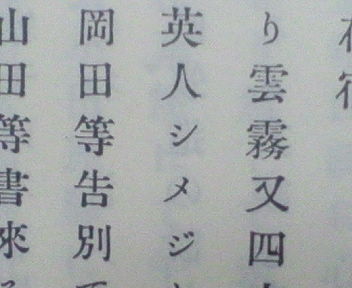 り雲霧又四
英人シメジ
岡田等告別
山田等書來